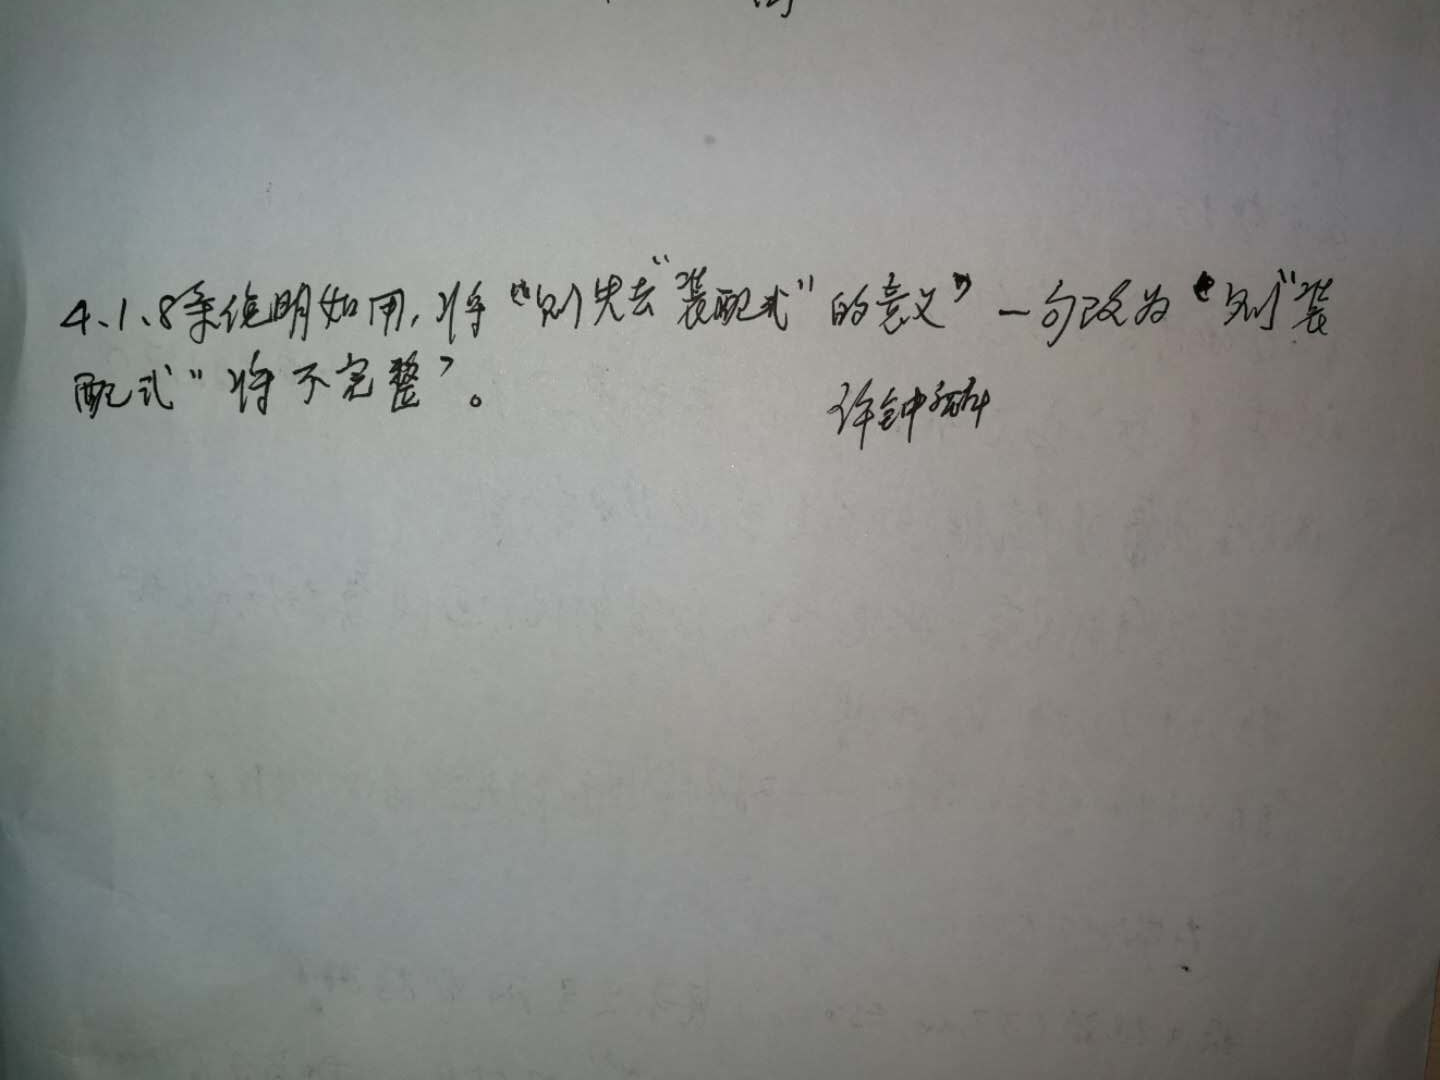 4.1.8条说明如用,将“则失去“装配式”的意义”一句改为“则“装
配式”将不完整”。
许钟麟